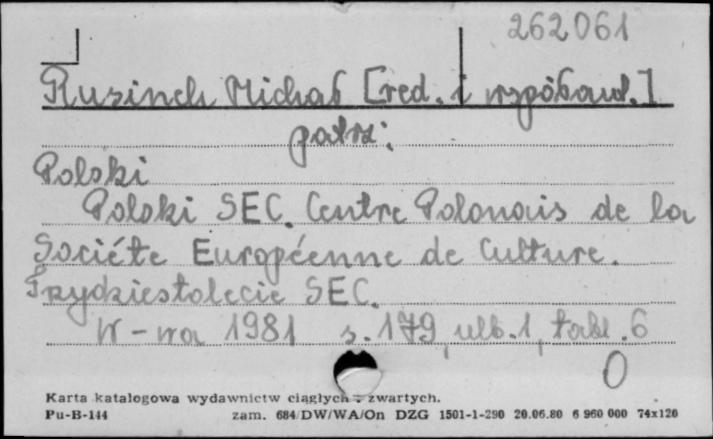 262061
Rusinek Michał [red. i współaut.]
patrz:
Polski
Polski SEC. Centre Polonais de la
Société Européenne de Culture.
Trzydziestolecie SEC.
W-wa 1981 s. 179, ulb. 1, tabl. 6
0
Karta katalogowa wydawnictw ciągłych - zwartych.
Pu-B-144 zam. 684/DW/WA/On DZG 1501-1-290 20.06.80 6 960 000 74x120